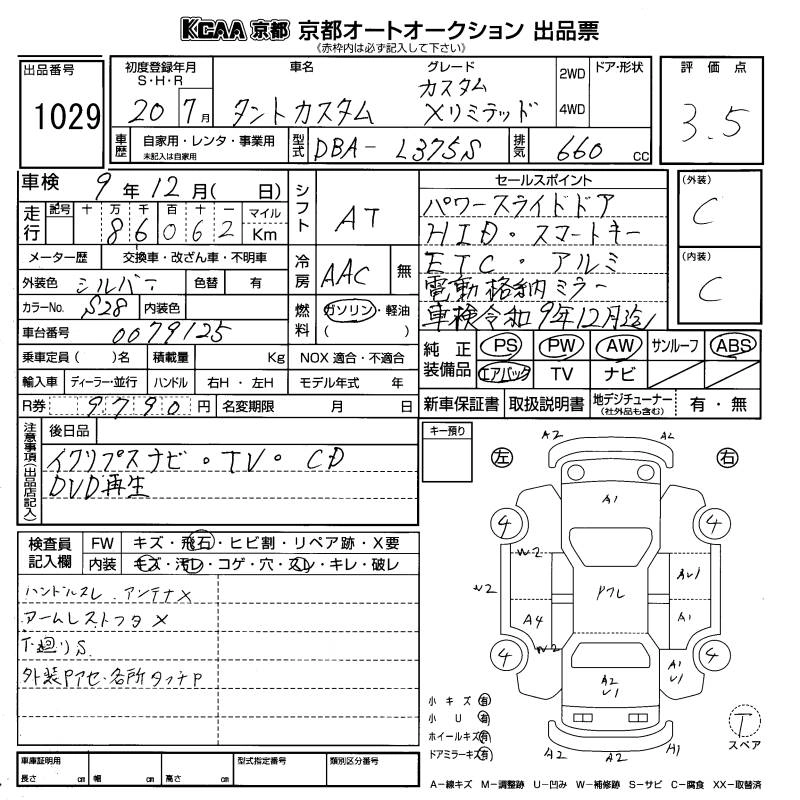 KCAA 京都 京都オートオークション 出品票
《赤枠内は必ず記入して下さい》
出品番号
1029
初度登録年月
S・H・R
20 7月
車名
タントカスタム
グレード
カスタム
Xリミテッド
2WD
4WD
ドア・形状
評価点
3.5
車歴
自家用・レンタ・事業用
未記入は自家用
型式
DBA- L375S
排気
660 cc
車検 9年12月( 日)
走行
記号 十 万 千 百 十 一
86062
マイル
Km
メーター歴 交換車・改ざん車・不明車
外装色 シルバー 色替 有
カラーNo. S28 内装色
車台番号 0079125
乗車定員( )名 積載量 Kg
輸入車 ディーラー・並行 ハンドル 右H・左H
R券 9790円 名変期限 月 日
シフト AT
冷房 AAC 無
燃料 ガソリン・軽油
( )
NOX 適合・不適合
モデル年式 年
セールスポイント
パワースライドドア
HID・スマートキー
ETC・アルミ
電動格納ミラー
車検令和9年12月迄
(外装)
C
(内装)
C
純正装備品
PS PW AW サンルーフ ABS
エアバック TV ナビ
新車保証書 取扱説明書 地デジチューナー
(社外品も含む)
有・無
注意事項(出品店記入)
後日品
イクリプスナビ・TV・CD
DVD再生
検査員記入欄
FW キズ・飛石・ヒビ割・リペア跡・X要
内装 キズ・汚レ・コゲ・穴・スレ・キレ・破レ
ハンドルスレ アンテナX
アームレストフタX
下廻りS
外装Pアセ・各所タッチP
キー預り
左
右
A2 A2
A1
4 4
W2
W2
A4
W2
Pフレ
AU1
A1
4 4
A1
U1
A2
U1
A2 A2 A1
小キズ 有
小U 有
ホイールキズ 有
ドアミラーキズ 有
T
スペア
車庫証明用
長さ cm 幅 cm 高さ cm
型式指定番号
類別区分番号
A-線キズ M-調整跡 U-凹み W-補修跡 S-サビ C-腐食 XX-取替済